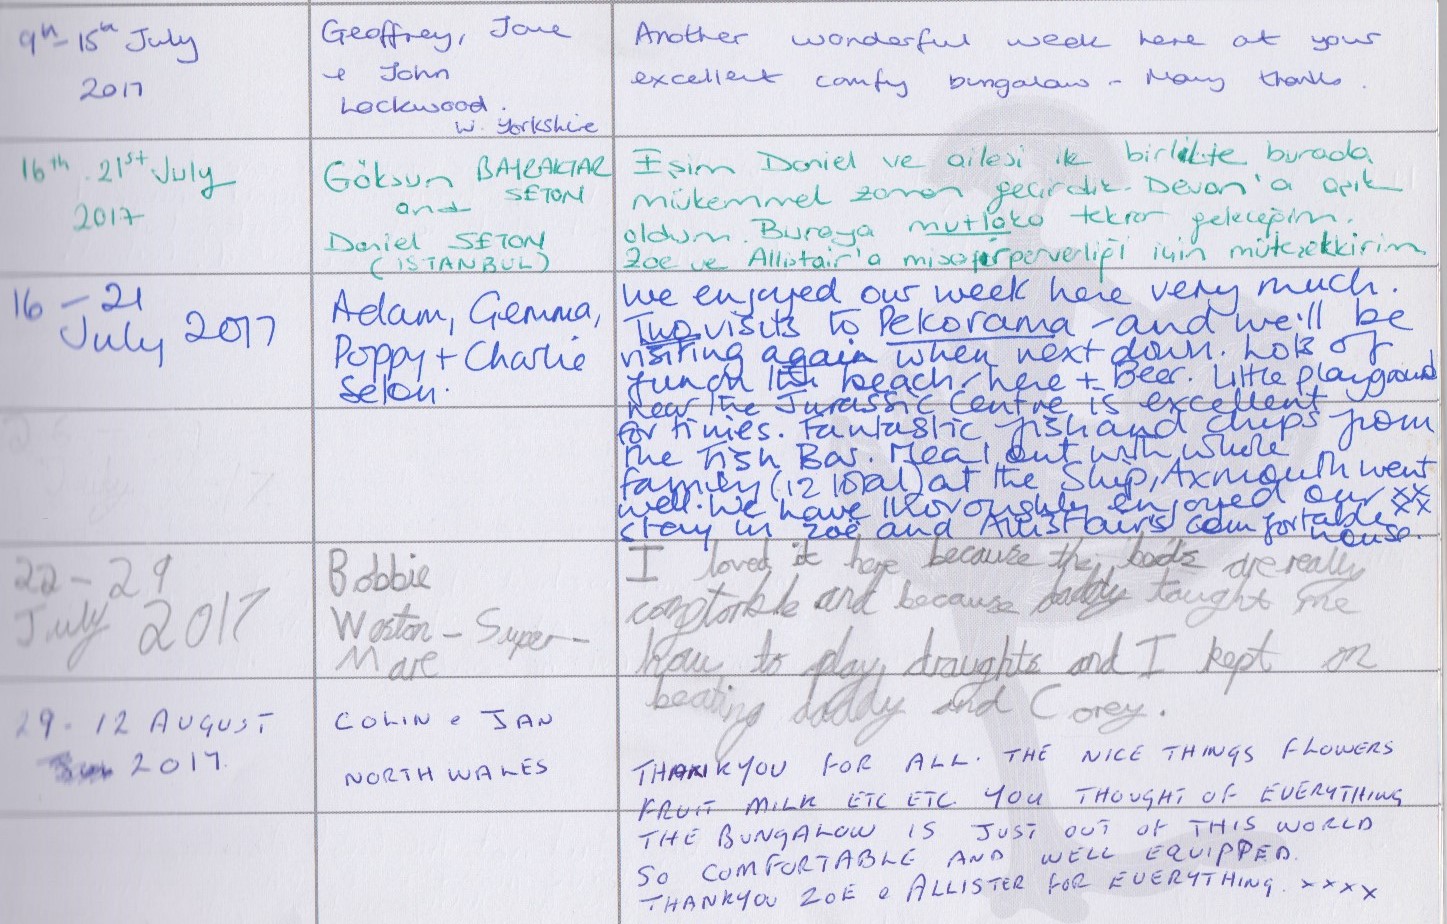 9th - 15th July
2017
Geoffrey, Jane
& John
Lockwood.
W. Yorkshire
Another wonderful week here at your
excellent comfy bungalow - Many thanks.
16th - 21st July
2017
Göksun BAYRAKTAR
SETON
and
Daniel SETON
(İSTANBUL)
Eşim Daniel ve ailesi ile birlikte burada
mükemmel zaman geçirdik. Devon'a aşık
oldum. Buraya mutlaka tekrar geleceğim.
Zoe ve Allistair'a misafirperverliği için müteşekkirim
16 - 21
July 2017
Adam, Gemma,
Poppy + Charlie
Seton.
We enjoyed our week here very much.
Two visits to Pekorama - and we'll be
visiting again when next down. Lots of
fun on the beach - here + Beer. Little playground
near the Jurassic Centre is excellent
for tinies. Fantastic fish and chips from
the Fish Bar. Meal out with whole
family (12 total) at the Ship, Axmouth went
well. We have thoroughly enjoyed our xx
stay in Zoë and Allistair's comfortable xx
house.
22 - 29
July 2017
Bobbie
Weston - Super -
Mare
I loved it here because the beds are really
comftorble and because daddy taught me
how to play draughts and I kept on
beating daddy and Corey.
29 - 12 AUGUST
2017.
COLIN & JAN
NORTH WALES
THANKYOU FOR ALL. THE NICE THINGS FLOWERS
FRUIT MILK ETC ETC. YOU THOUGHT OF EVERYTHING
THE BUNGALOW IS JUST OUT OF THIS WORLD
SO COMFORTABLE AND WELL EQUIPPED.
THANKYOU ZOE & ALLISTER FOR EVERYTHING. xxxx